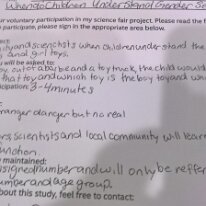 When do Children Understand Gender Se
ur voluntary participation in my science fair project. Please read the f
participate, please sign in the appropriate area below.
ly and scientists when children understand the
and girl toys.
u will be asked to:
oy, out of a barbie and a toy truck, the child would
that toy and which toy is the boy toy and wo
cipation: 3-4 minutes
tranger danger but no real
rs, scientists and local community will learn
unction.
maintained:
signed number and will only be reffer
umber and age group.
bout this study, feel free to contact: